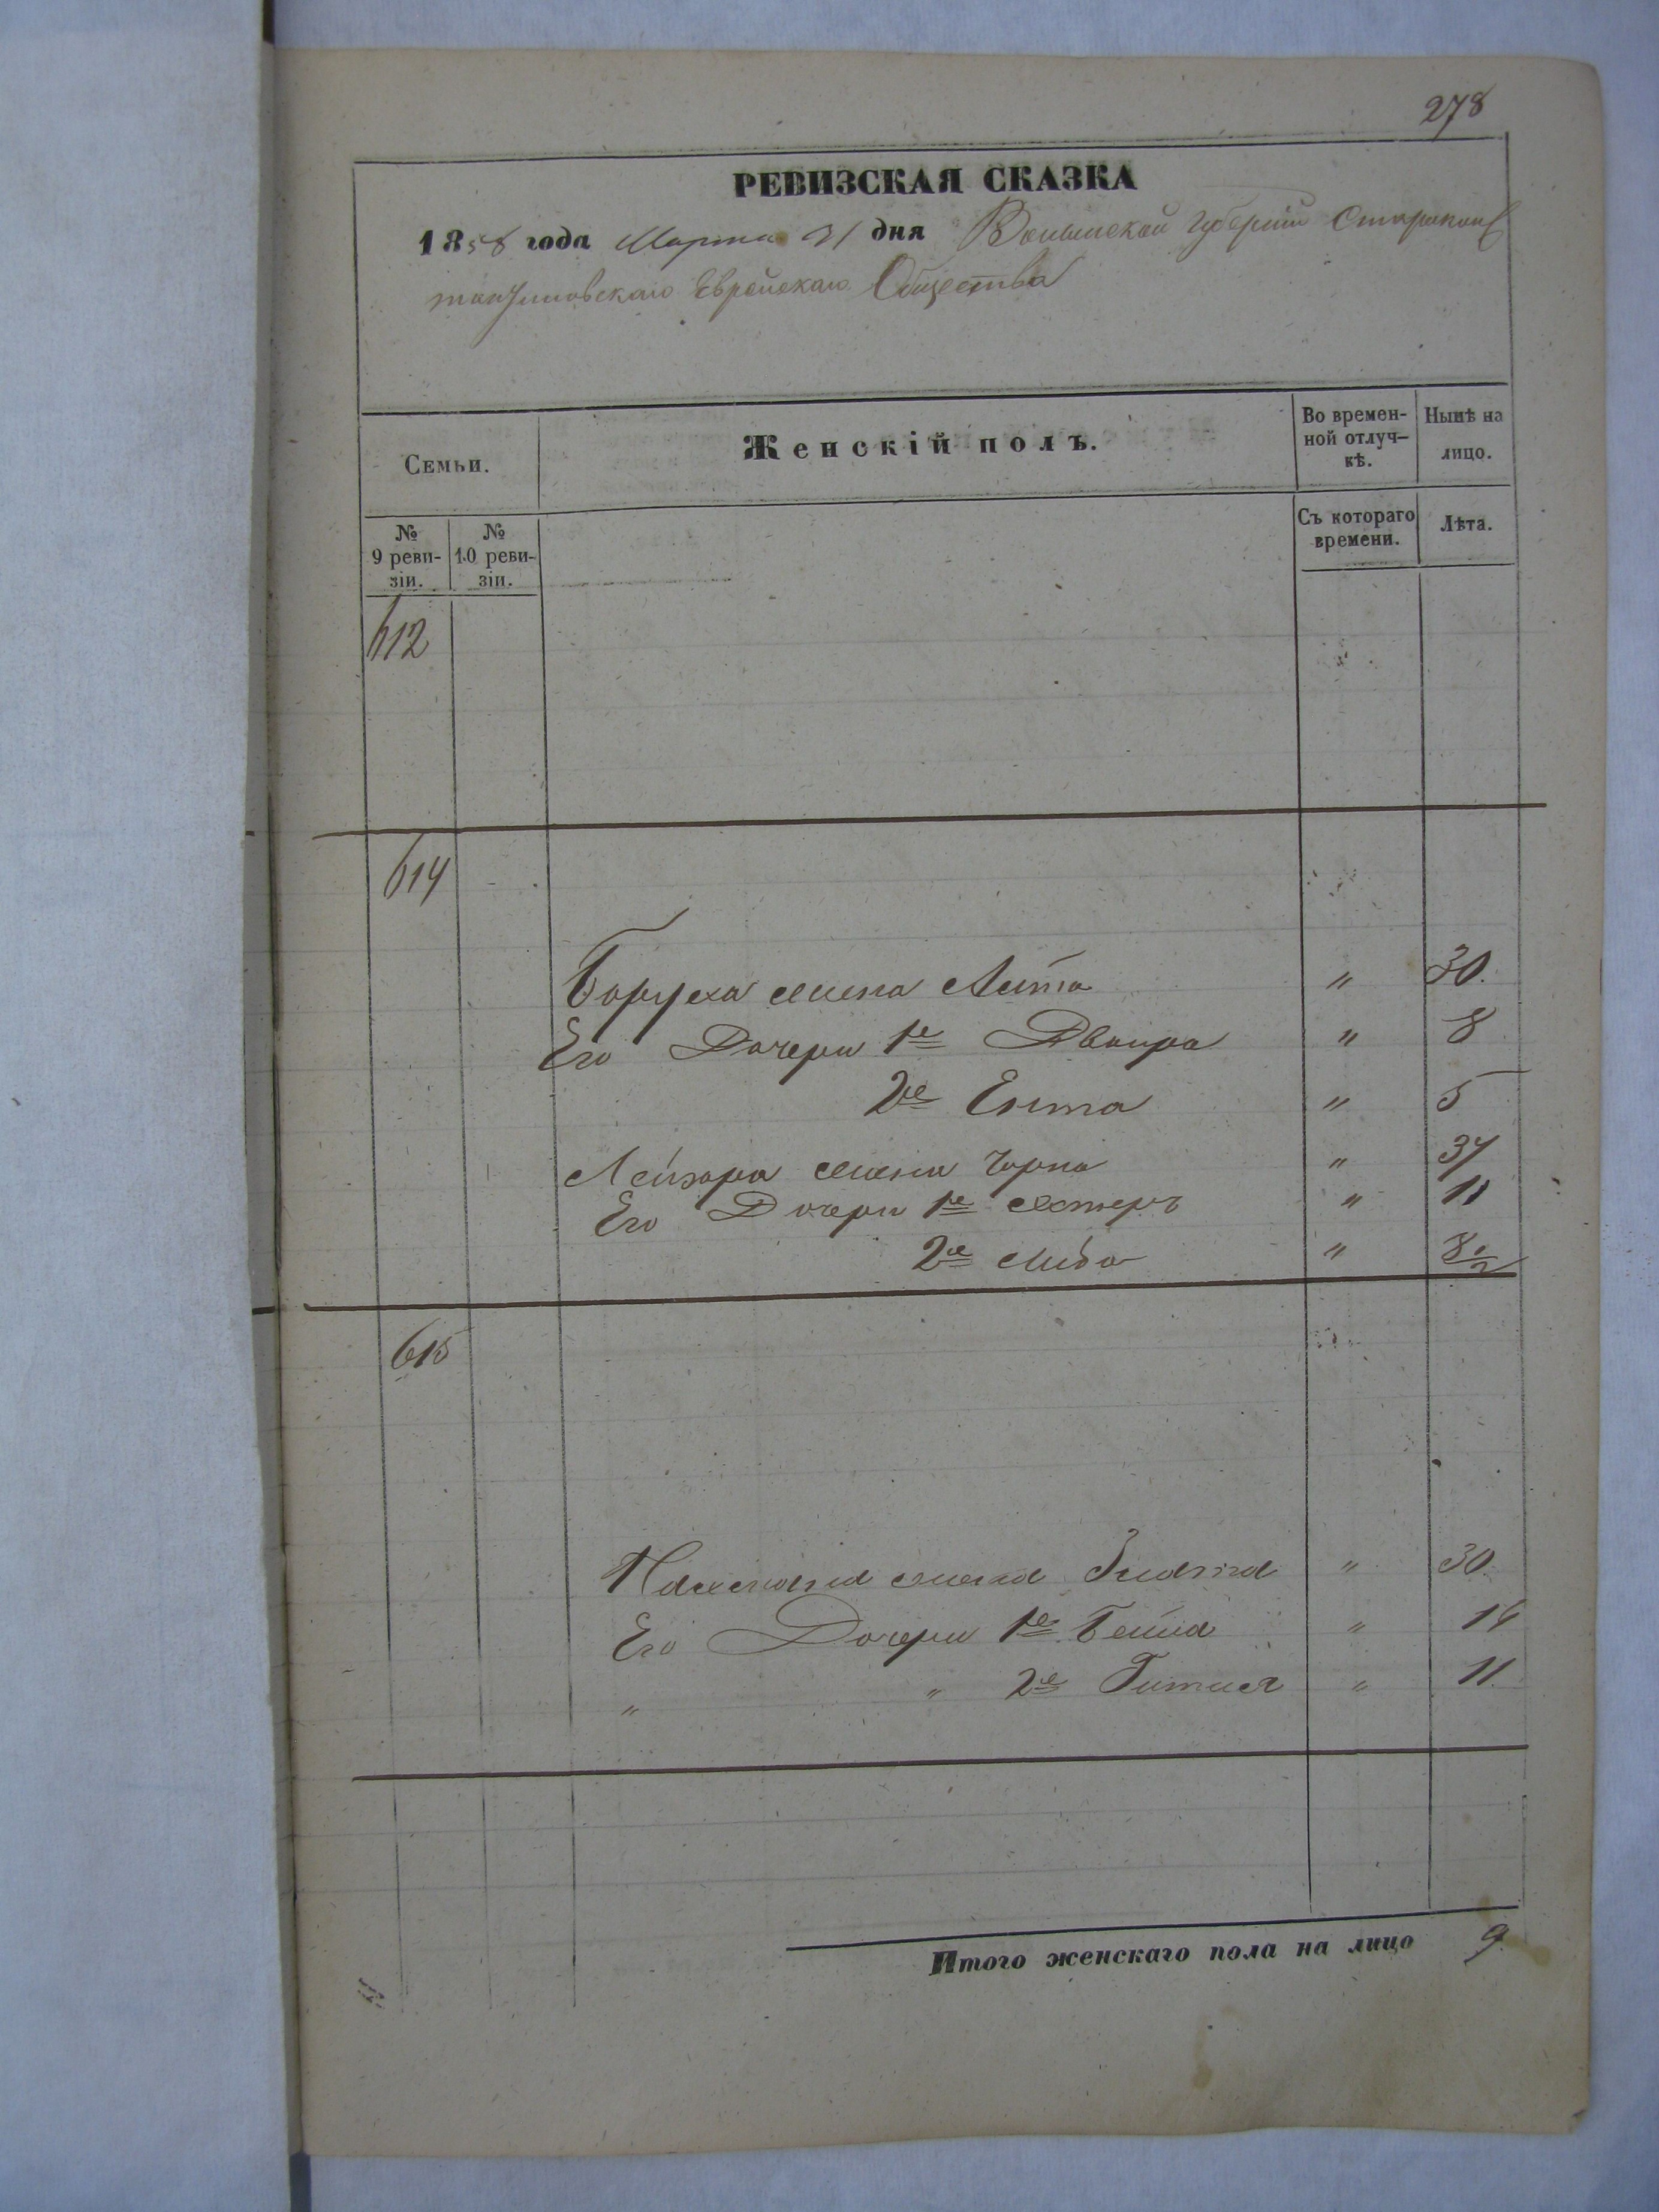 278
РЕВИЗСКАЯ СКАЗКА
1858 года Марта 31 дня Волынской Губерніи Староконс
тантиновскаго Еврейскаго Общества
Семьи.
Женскій полъ.
Во времен-
ной отлуч-
кѣ.
Нынѣ на
лицо.
№
9 реви-
зіи.
№
10 реви-
зіи.
Съ котораго
времени.
Лѣта.
612
614
Боруха жена " 30.
Его Дочери 1е Двойра " 8
2е Ента " 5
Лейзера жена Чарна " 37
Его Дочери 1е Эстеръ " 11
2е " 8 1/2
615
жена Злата " 30.
Его Дочери 1е Бейла " 14
" " 2е Гитля " 11.
Итого женскаго пола на лицо 9.